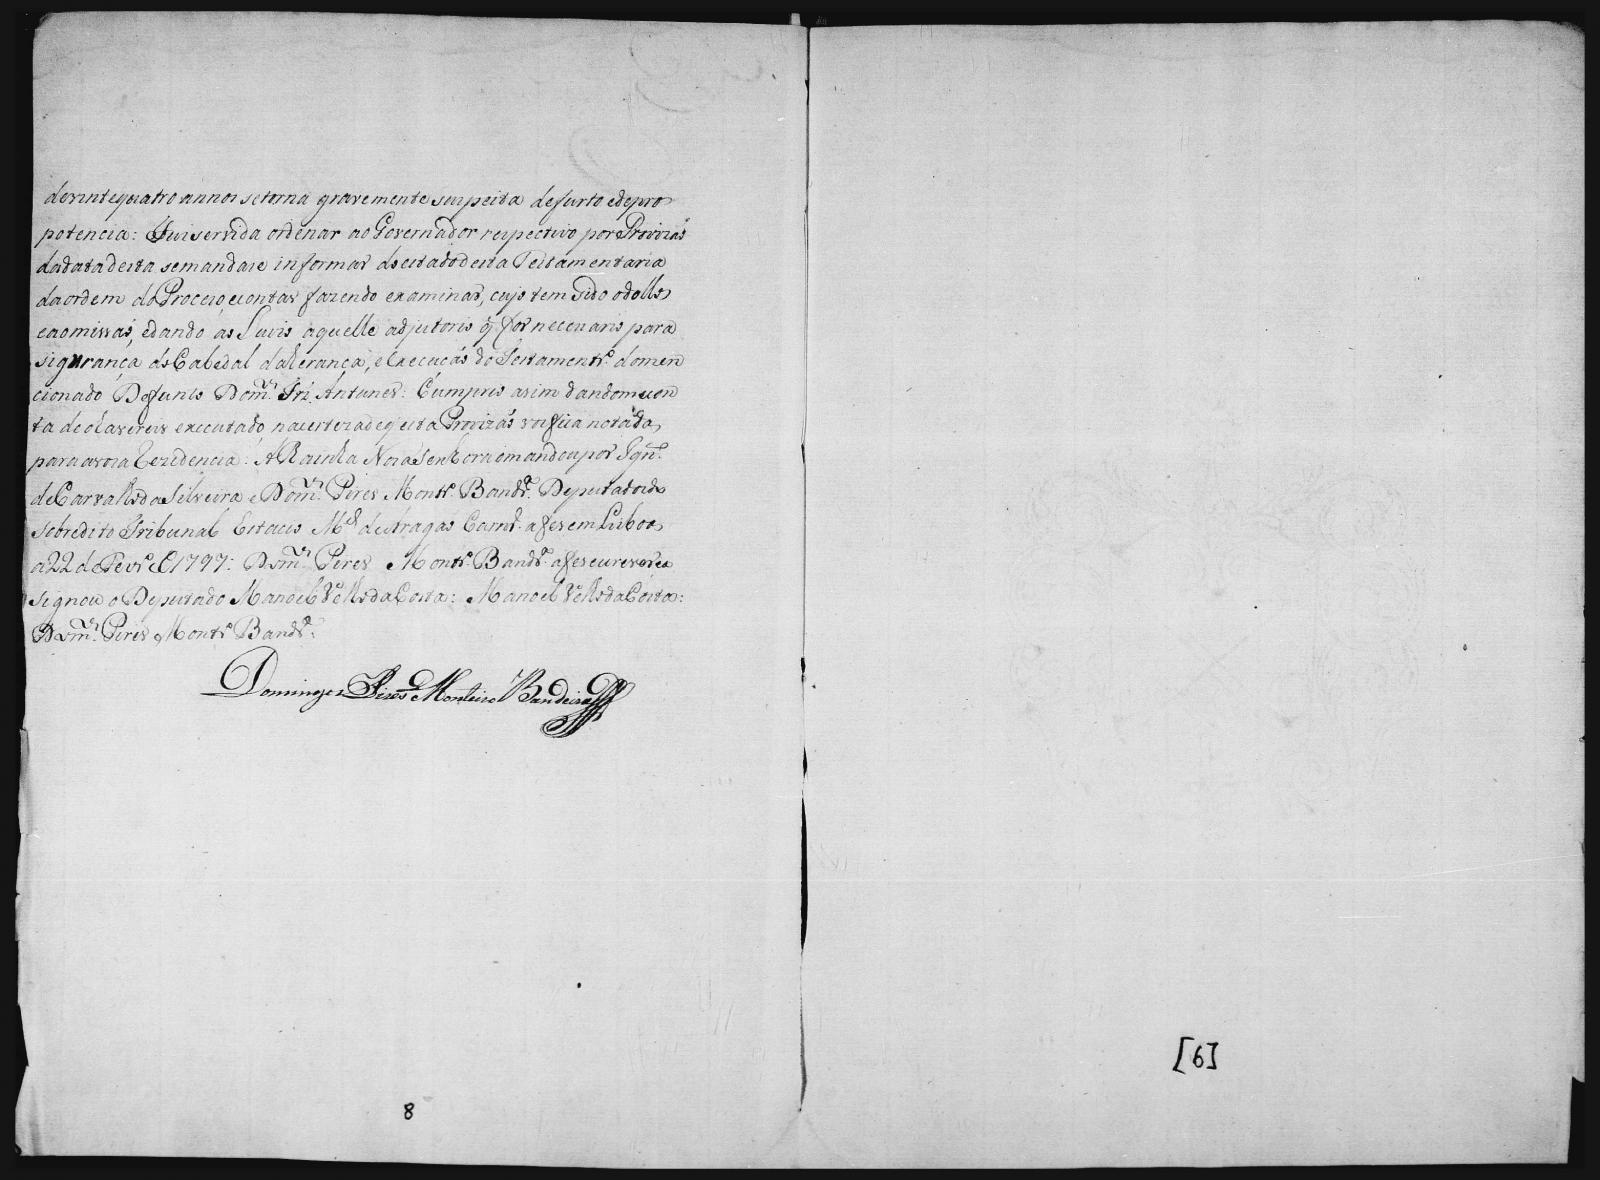 devinte quatro annos se torna gravemente suspeita de furto e de pro
potencia: Fui servida ordenar ao Governador respectivo por Provizaõ
da data desta se mandase informar do estado desta Testamentaria
da ordem do Proceso e contas fazendo examinar, cujo tem sido o dollo,
e a omissaõ, e dando ás Juizo aquelle adjutorio q̃ for necesario para
sigurança do Cabedal da Herança, e Execuçaõ do Testamentº. do men
cionado Defunto Domos. Frz. Antunes: Cumprio asim dandome con
ta de o havereis executado na certeza de q̃ esta Provizaõ vos fica notada,
para a vosa Rezidencia: A Rainha Nosa Senhora o mandou por Ignº.
de Carvalho da Silveira e Domos. Pires Montrº. Bandrª. Deputados do
sobredito Tribunal Estacio Mel de Aragaõ Carnrº. a fes em Lisboa
a 22 de Fevrº. de 1797: Domos. Pires Montrº. Bandrª. a fes escrever e a
signou o Deputado Manoel Velho da Costa: Manoel Velho da Costa:
Domos. Pires Montrº Bandrª:
Domingos Pires Monteiro Bandeira
8
[6]